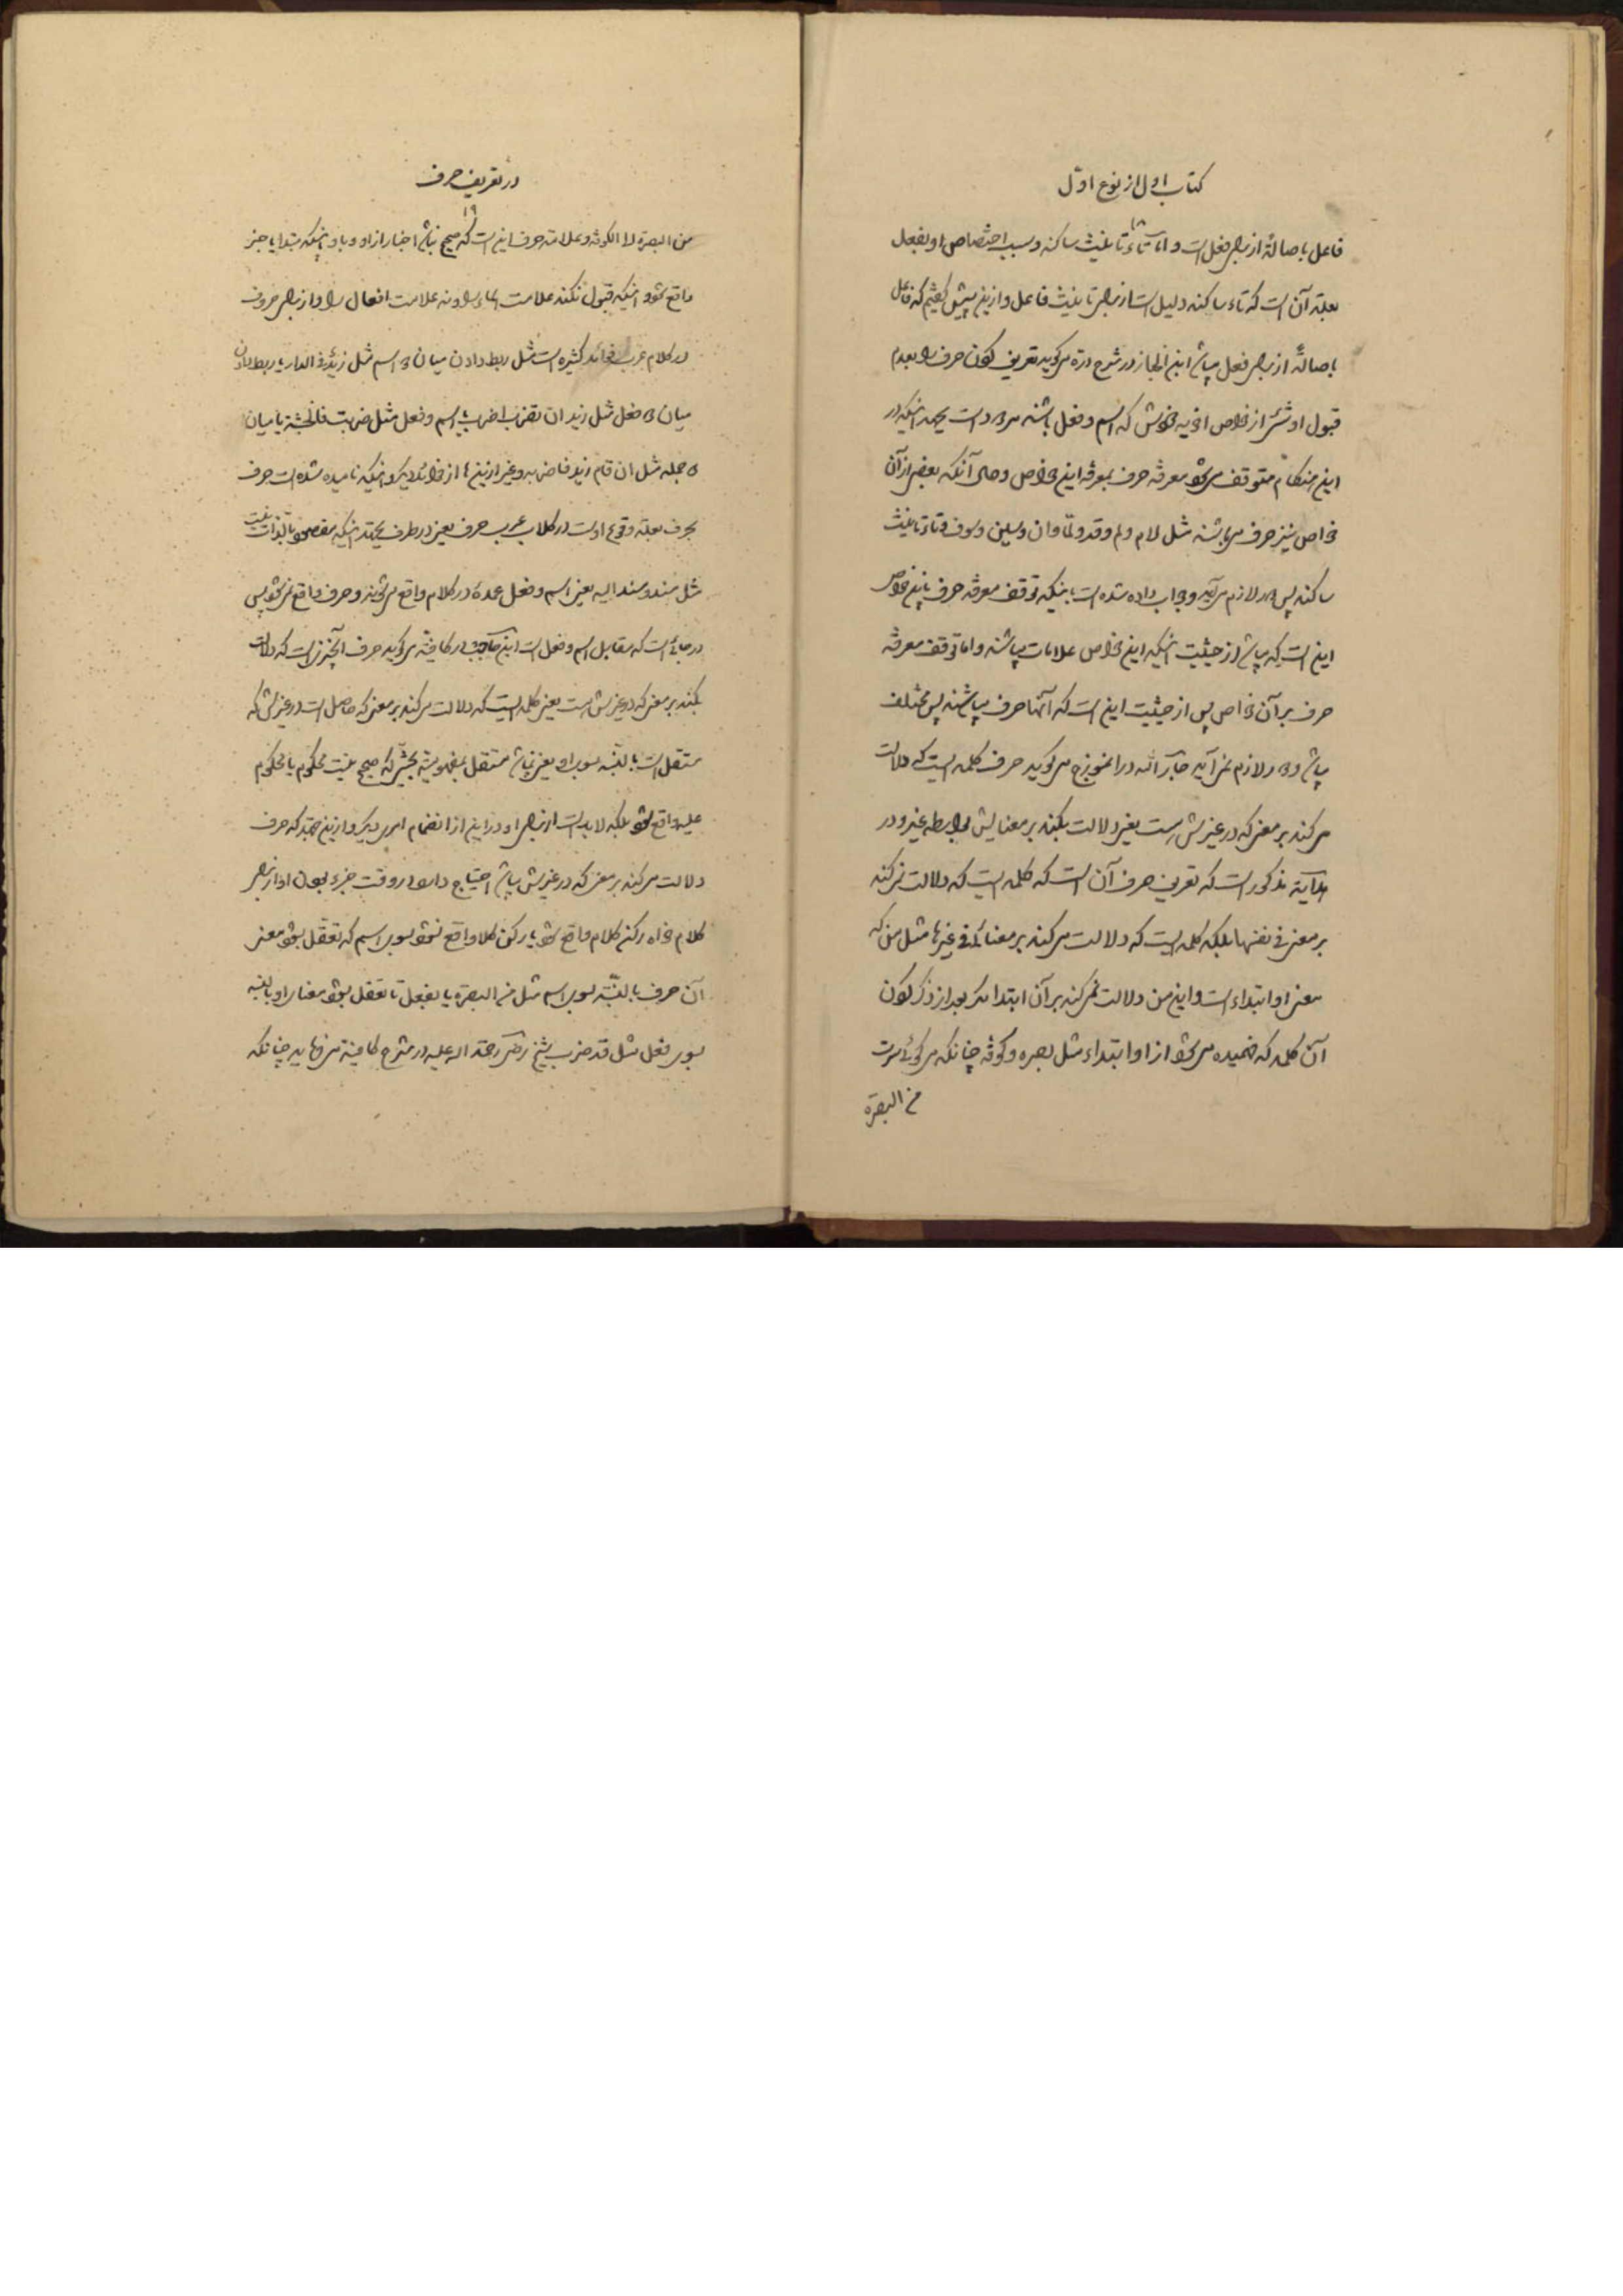 کتاب اول از نوع اول
۱۸
فاعل باصالة از برای فعل است و اما تاء تانیث ساکنه و سبب اختصاص او بفعل
بعلة آن است که تاء ساکنه دلیل است از برای تانیث فاعل و ازین پیش گفتیم که فاعل
باصالةً از برای فعل میباشد ابن الخباز در شرح دره میگوید تعریف کون حرف را بعدم
قبول او شئ از خواص اخویه خودش که اسم و فعل باشند مردود است بجهة اینکه در
این هنگام متوقف میشود معرفة حرف بمعرفة این خواص و حال آنکه بعضی از آن
خواص نیز حرف میباشند مثل لام و لم و قد و لمّا و ان و سین و سوف و تاء تانیث
ساکنه پس دور لازم میآید و جواب داده شده است باینکه توقف معرفة حرف باین خواص
این است که میباشد از حیثیت اینکه این خواص علامات میباشند و اما توقف معرفة
حرف بر آن خواص پس از حیثیت این است که آنها حرف میباشند پس مختلف
میباشد و دور لازم نمیآید جار الله در انموزج میگوید حرف کلمه ایست که دلالت
میکند بر معنی که در غیرش است یعنی دلالت بکند بر معنایش بواسطه غیر و در
هدایة مذکور است که تعریف حرف آن است که کلمه ایست که دلالت نمیکند
بر معنی فی نفسها بلکه کلمه ایست که دلالت میکند بر معنائی فی غیرها مثل من که
معنی او ابتداء است و این من دلالت نمیکند بر آن ابتدا مگر بعد از ذکر کون
آن کلمه که فهمیده میشود از او ابتداء مثل بصره و کوفه چنانکه میگوئی سرت
من البصرة
در تعریف حرف
۱۹
من البصرة الا الکوفة و علامة حرف این است که صحیح نباشد اخبار از او و باو و اینکه مبتدا یا خبر
واقع نشود و اینکه قبول نکند علامت اسماء را و نه علامت افعال را و از برای حروف
در کلام عرب فوائد کثیره است مثل ربط دادن میان دو اسم مثل زیدٌ فی الدار یا ربط دادن
میان دو فعل مثل ازید ان تضرب اضرب یا اسم و فعل مثل ضربت فالخشبة یا میان
دو جمله مثل ان قام زید فاضربه و غیر ازینها از فوائد دیگر و اینکه نامیده شده است حرف
بحرف بعلة وقوع اوست در کلام عرب حرف یعنی در طرف بجهة اینکه مقصود بالذات نیست
مثل مسند و مسند الیه یعنی اسم و فعل عمدة در کلام واقع میشوند و حرف واقع نمیشود پس
در جائی است که مقابل اسم و فعل است ابن حاجب در کافیة میگوید حرف آنچیزیست که دلالت
بکند بر معنی که در غیرش است یعنی کلمه ایست که دلالت میکند بر معنی که حاصل است در غیرش که
متعقل است بالنسبة بسوی او یعنی نباشد مستقل بمفهومیته بحیثی که صحیح نیست محکوم یا محکوم
علیه واقع شود بلکه لابد است از برای او در این از انضمام امر دیگر و از این جهة که حرف
دلالت میکند بر معنی که در غیرش میباشد احتیاج دارد در وقت جزء بودن او از برای
کلام خواه رکن کلام واقع شود یا رکن کلام واقع نشود بسوی اسم که تعقل بشود معنی
آن حرف بالنسبة بسوی اسم مثل من البصرة یا بفعل تا تعقل بشود معنای او بالنسبه
بسوی فعل مثل قد ضرب شیخ رضی رحمة الله علیه در شرح کافیة میفرماید چنانکه